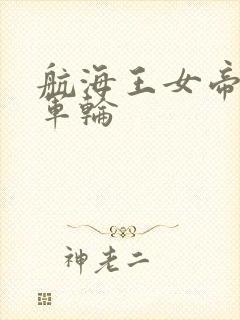 航海王女帝
車輪
神老二